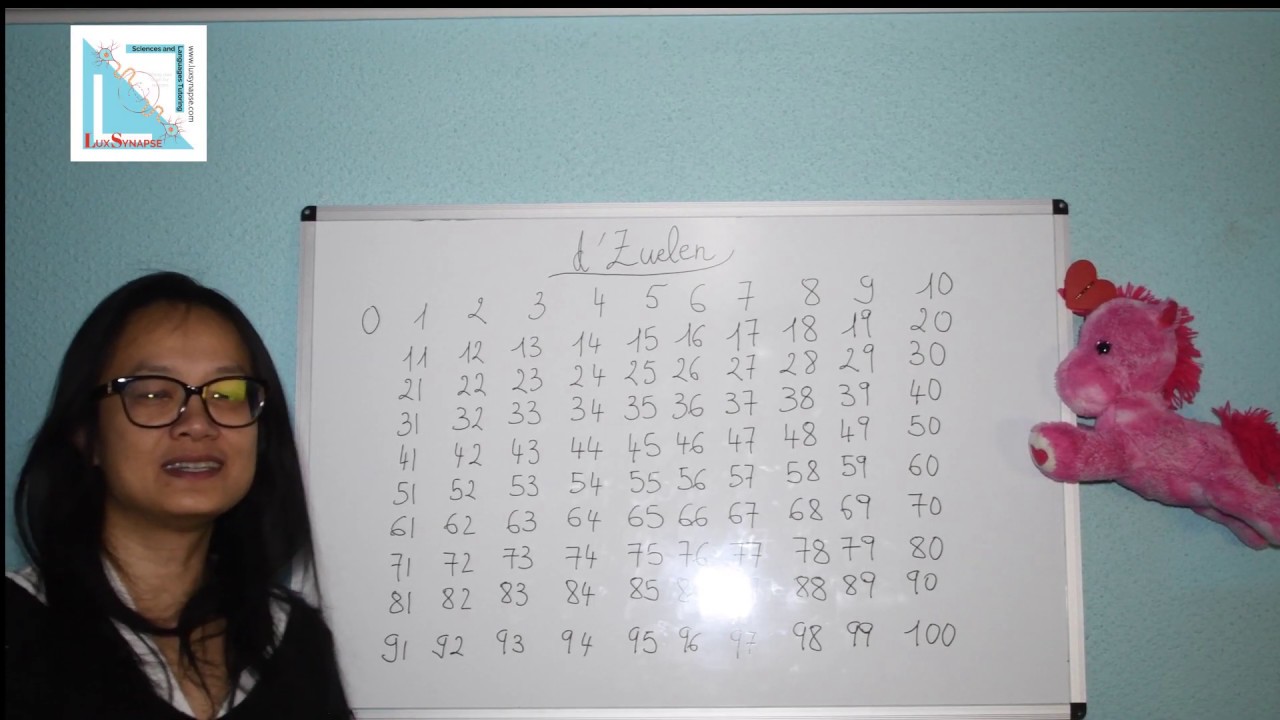 Sciences and
Languages Tutoring
www.luxsynapse.com
LUXSYNAPSE
d'Zuelen
0 1 2 3 4 5 6 7 8 9 10
11 12 13 14 15 16 17 18 19 20
21 22 23 24 25 26 27 28 29 30
31 32 33 34 35 36 37 38 39 40
41 42 43 44 45 46 47 48 49 50
51 52 53 54 55 56 57 58 59 60
61 62 63 64 65 66 67 68 69 70
71 72 73 74 75 76 77 78 79 80
81 82 83 84 85 88 89 90
91 92 93 94 95 96 97 98 99 100